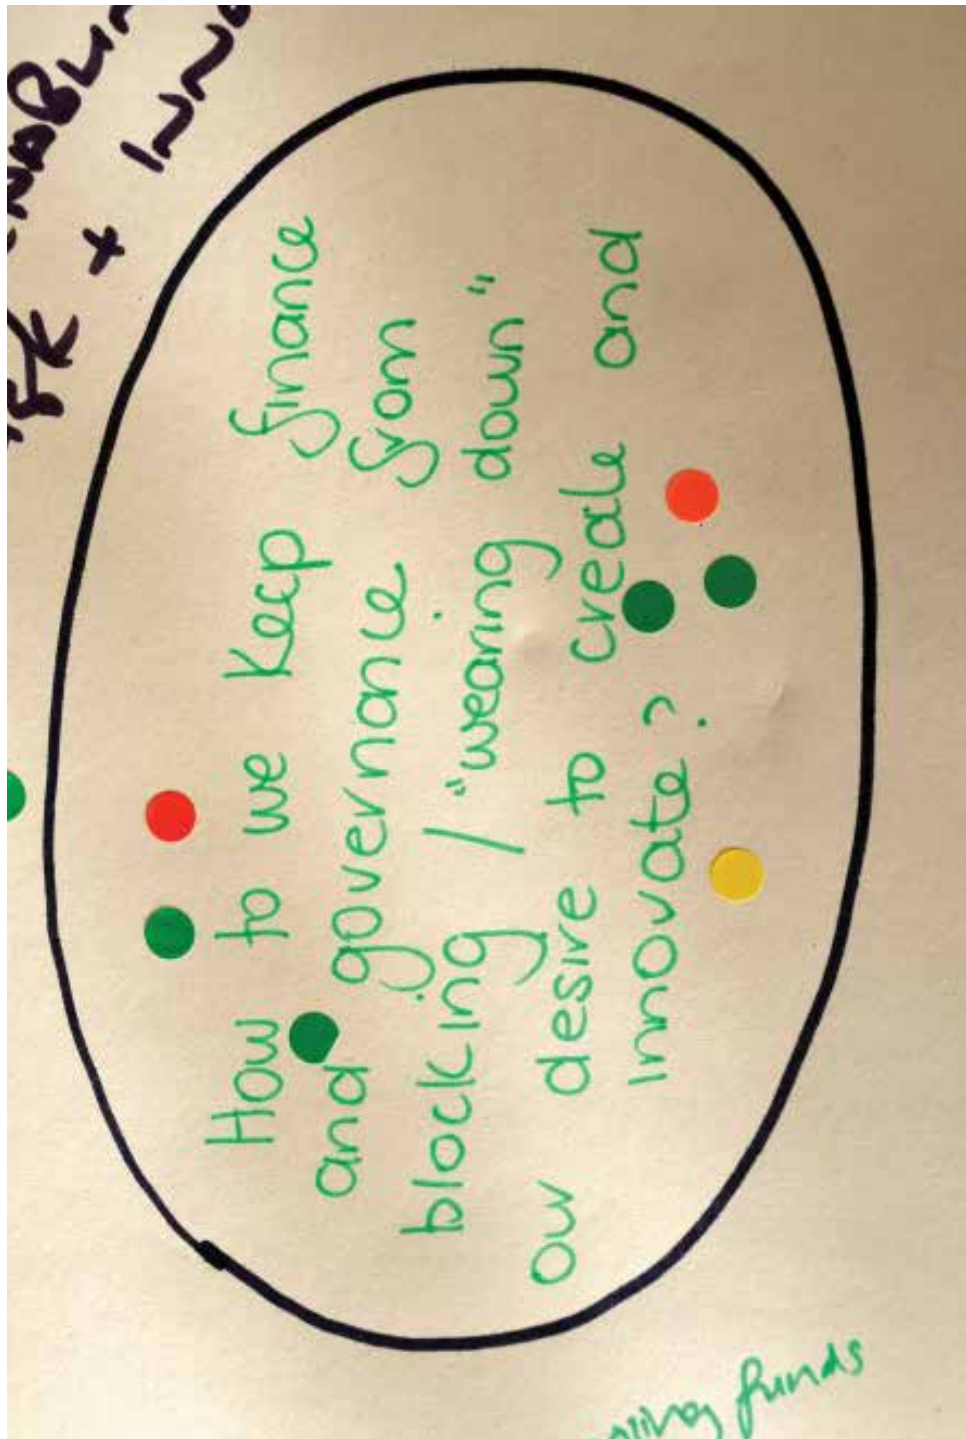 How to we keep finance
and governance from
blocking / "wearing down"
our desire to create and
innovate?
funds